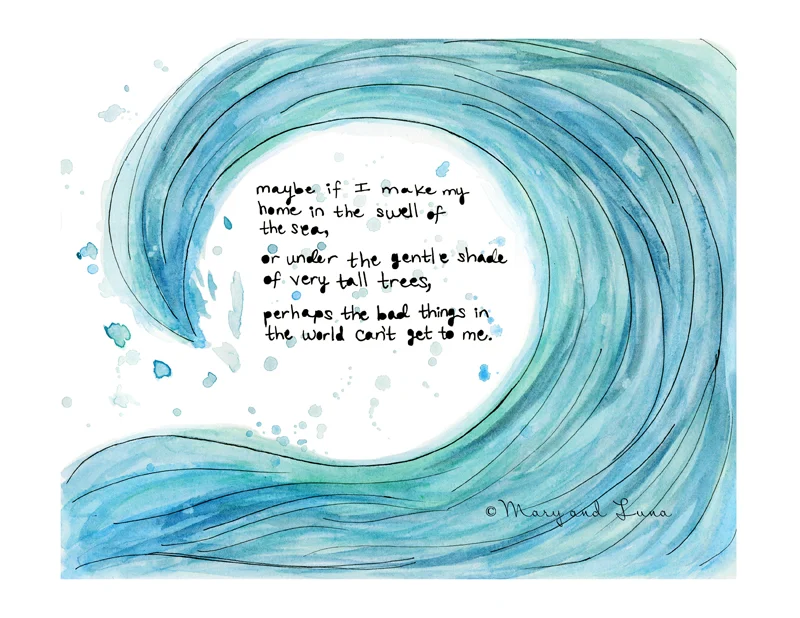 maybe if I make my
home in the swell of
the sea,
or under the gentle shade
of very tall trees,
perhaps the bad things in
the world can't get to me.
© Mary and Luna